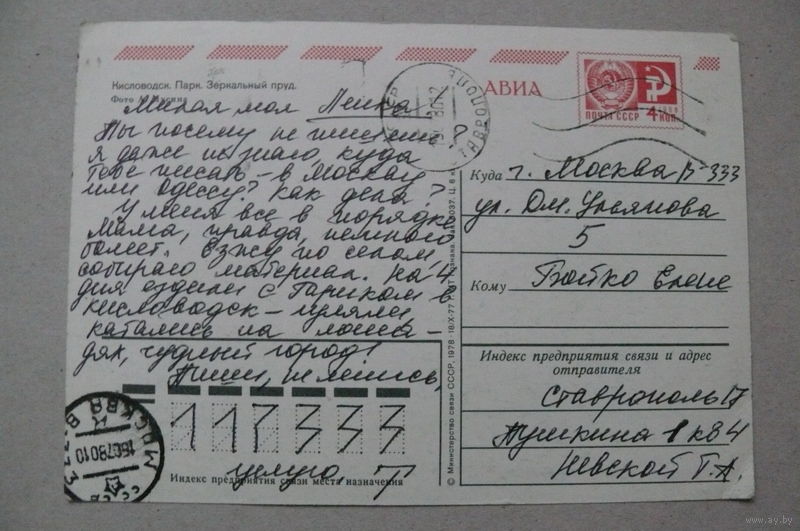 Кисловодск. Парк. Зеркальный пруд.
Фото
АВИА
ПОЧТА СССР 4 КОП.
Милая моя Ленка!
Ты почему не пишешь?
я даже не знаю, куда
тебе писать – в Москву
или Одессу? Как дела?
У меня все в порядке
Мама, правда, немного
болеет. Езжу по селам,
собираю материал. На 4
дня ездили с Гариком в
Кисловодск – гуляли,
катались на лоша-
дях, чудный город!
Пиши, не ленись,
целую, Т
117333
Индекс предприятия связи места назначения
МОСКВА В-333
160780.10
СССР
© Министерство связи СССР, 1978
Куда г. Москва В-333
ул. Дм. Ульянова
5
Кому Бойко Елене
Индекс предприятия связи и адрес
отправителя
Ставрополь 17
Пушкина 1 кв 4
Невской Т.А.
www.ay.by